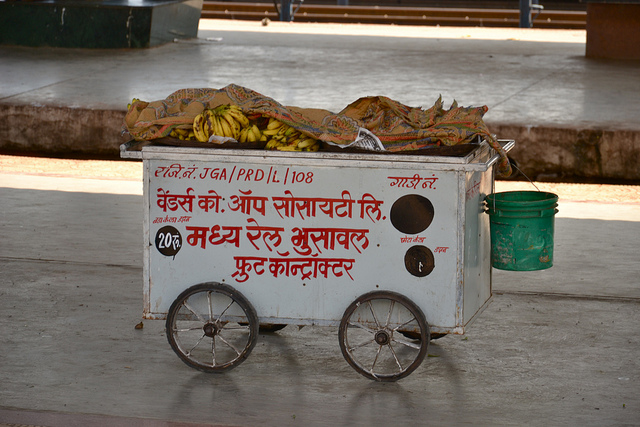 रजि.नं. JGA/PRD/L/108
गाडी नं.
वेंडर्स को. ऑप सोसायटी लि.
20रु.
मध्य रेल भुसावल
फ्रुट कॉन्ट्रॉक्टर